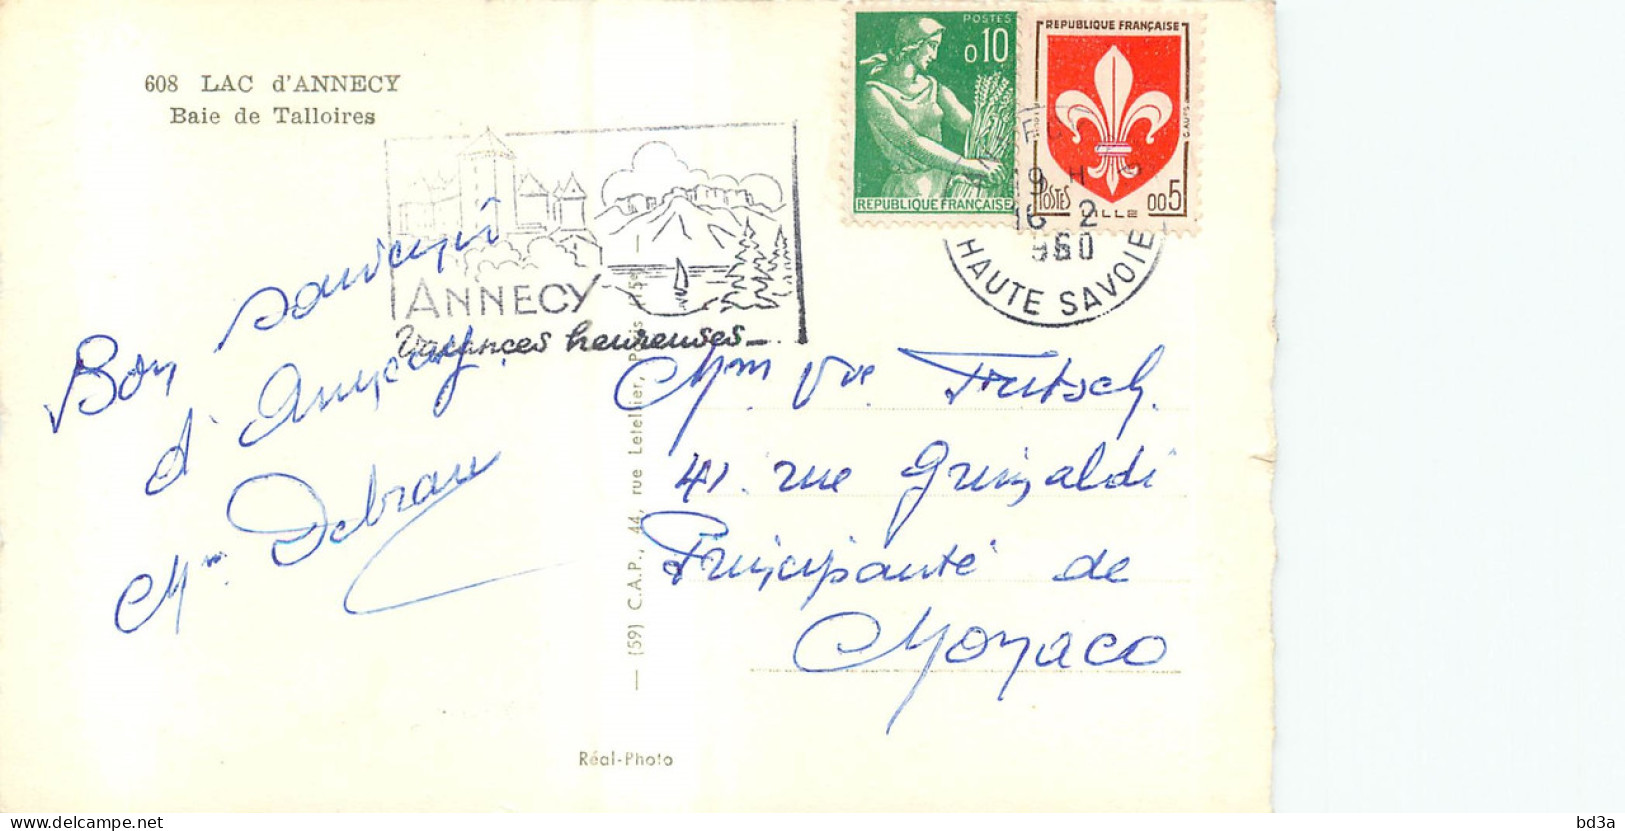 608 LAC d'ANNECY
Baie de Talloires
POSTES
0,10
REPUBLIQUE FRANÇAISE
REPUBLIQUE FRANÇAISE
POSTES
LILLE
005
19 H
16 2
1960
HAUTE SAVOIE
ANNECY
Vacances heureuses
Bon souvenir
d'Annecy.
Mm. Debrau
Mm. Vve Frutsch.
41. rue Grimaldi
Principauté de
Monaco
— (59) C.A.P., 44, rue Letellier, Paris (15e)
Réal-Photo
bd3a